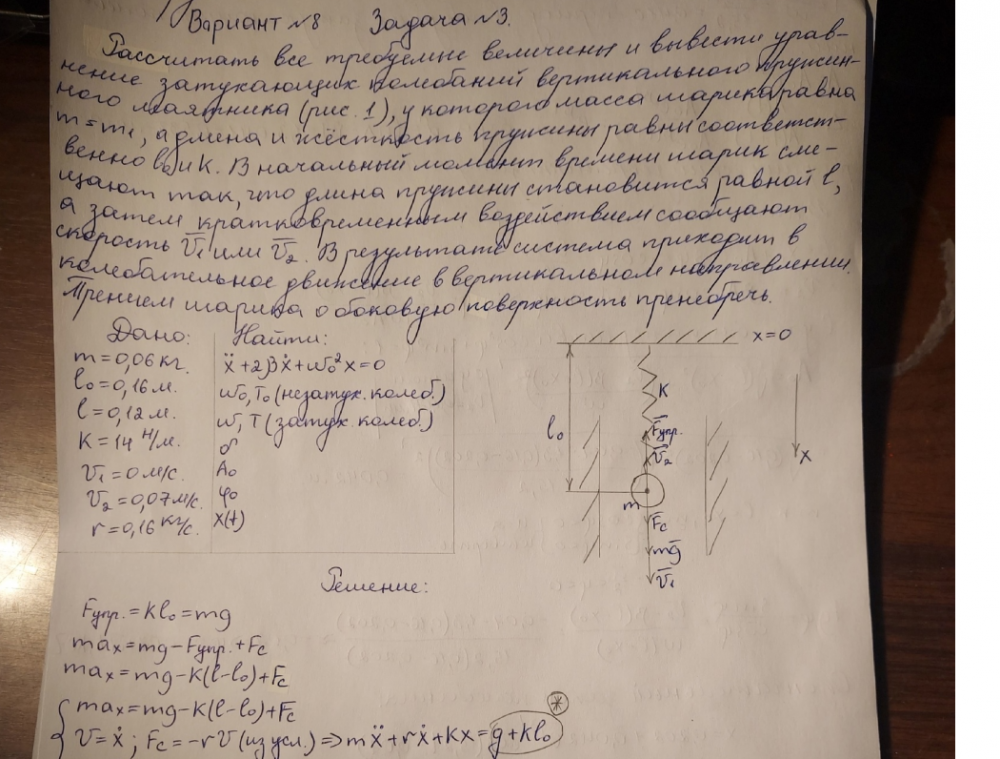 Вариант №8 Задача №3.
Рассчитать все требуемые величины и вывести урав-
нение затухающих колебаний вертикального пружин-
ного маятника (рис. 1), у которого масса шарика равна
m = m₁, а длина и жёсткость пружины равны соответст-
венно l₀ и K. В начальный момент времени шарик сме-
щают так, что длина пружины становится равной l,
а затем кратковременным воздействием сообщают
скорость V̄₁ или V̄₂. В результате система приходит в
колебательное движение в вертикальном направлении.
Трением шарика о боковую поверхность пренебречь.
Дано:
m = 0,06 кг.
l₀ = 0,16 м.
l = 0,12 м.
K = 14 Н/м.
V₁ = 0 м/с.
V₂ = 0,07 м/с.
r = 0,16 кг/с.
Найти:
ẍ + 2βẋ + ω₀²x = 0
ω₀, T₀ (незатух. колеб.)
ω, T (затух. колеб.)
σ
A₀
φ₀
x(t)
x=0
K
l₀
F̄упр.
V̄₂
x
m
F̄c
mḡ
V̄₁
Решение:
Fупр. = Kl₀ = mg
maₓ = mg - Fупр. + Fc
maₓ = mg - K(l - l₀) + Fc
maₓ = mg - K(l - l₀) + Fc
V = ẋ ; Fc = -rV (из усл.) ⇒ mẍ + rẋ + Kx = g + Kl₀ *